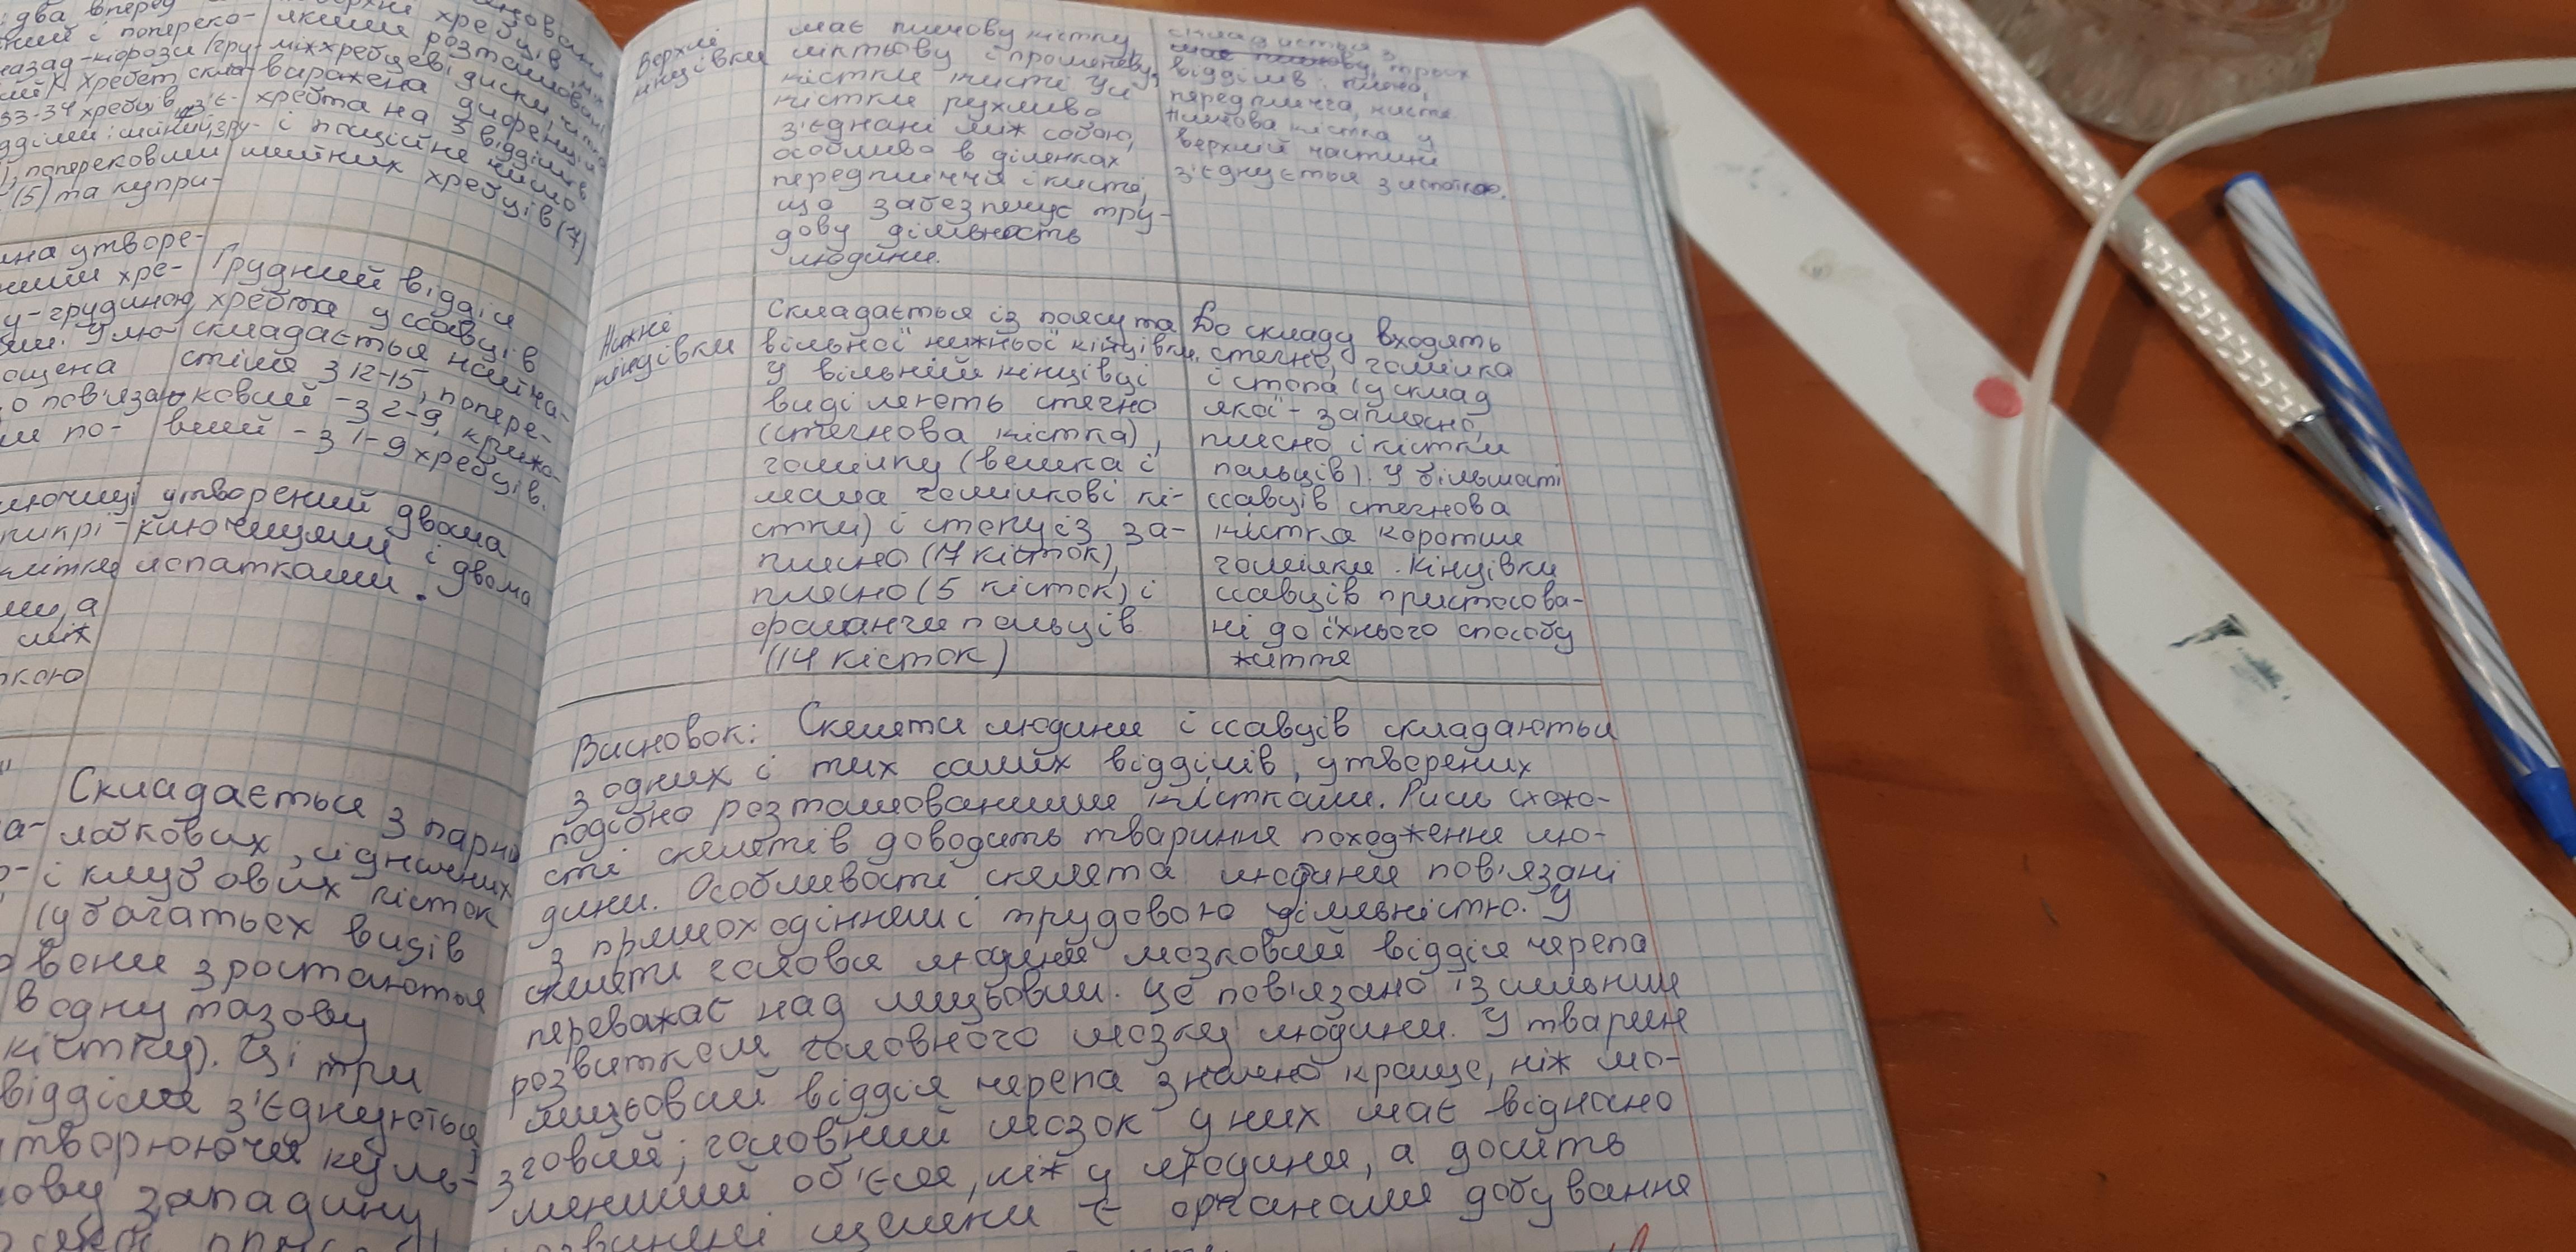 два вперед
ний і попереко-
назад-кіфози (гру-
Хребет скла-
33-34 хребців, з'є-
відділи: шийний, гру-
), поперековий
(5) та купри-
хребців
якими розташовані
міжхребцеві диски,
виражена диференція
хребта на 5 відділів
і постійне число
шийних хребців (7)
на утворе-
хре-
у-грудиною,
ми. У лю-
ощена
о пов'яза-
ми по-
Грудний відділ
хребта у ссавців
складається найча-
стіше з 12-15, попере-
ковий - з 2-9, крижо-
вий - з 1-9 хребців.
ключиці
між
ткою
утворений двома
ключицями і двома
лопатками.
Складається з парних
лобкових, сідничних
і клубових кісток
(у багатьох видів
вони зростаються
в одну тазову
кістку). Ці три
відділи з'єднуються
утворюючи куль-
шову западину,
Верхні
кінцівки
має плечову кістку,
ліктьову і променеву,
кістки кисті. Усі
кістки рухливо
з'єднані між собою,
особливо в ділянках
передпліччя і кисті,
що забезпечує тру-
дову діяльність
людини.
складається з
трьох
відділів: плеча,
передпліччя, кисті.
Плечова кістка у
верхній частині
з'єднується з лопаткою.
Нижні
кінцівки
Складається із поясу та
вільної нижньої кінцівки.
У вільній кінцівці
виділяють стегно
(стегнова кістка),
гомілку (велика і
мала гомілкові кі-
стки) і стопу із за-
плесно (7 кісток),
плесно (5 кісток) і
фаланги пальців
(14 кісток)
До складу входять
стегно, гомілка
і стопа (у склад
якої - заплесно,
плесно і кістки
пальців). У більшості
ссавців стегнова
кістка коротше
гомілки. Кінцівки
ссавців пристосова-
ні до їхнього способу
життя
Висновок: Скелети людини і ссавців складаються
з одних і тих самих відділів, утворених
подібно розташованими кістками. Риси схожо-
сті скелетів доводить тваринне походження лю-
дини. Особливості скелета людини пов'язані
з прямоходінням і трудовою діяльністю. У
скелеті голови людини мозковий відділ черепа
переважає над лицьовим. Це пов'язано із сильним
розвитком головного мозку людини. У тварин
лицьовий відділ черепа значно краще, ніж мо-
зговий; головний мозок у них має відносно
менший об'єм, ніж у людини, а досить
розвинені щелепи є органами добування